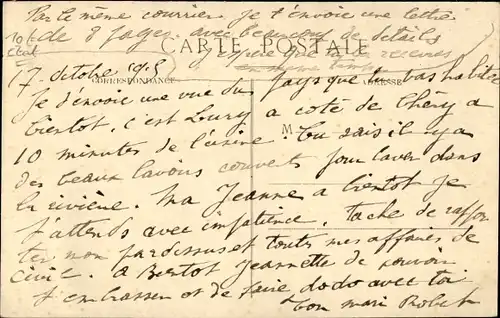 Par le même courrier je t'envoie une lettre
de 8 pages avec beaucoup de détails
CARTE POSTALE
j'espère que tu recevras
en même temps
17 Octobre
CORRESPONDANCE
ADRESSE
Je t'envoie une vue du pays que tu vas habiter
bientot, c'est Lury a coté de Chéry a
M
10 minutes de l'usine. Tu sais il y a
des beaux lavoirs couverts pour laver dans
la rivière. Ma Jeanne a bientot je
t'attends avec impatience, tache de rappor
ter mon pardessus et toutes mes affaires de
civil. a Bientot Jeannette de pouvoir
t'embrasser et de faire dodo avec toi
ton mari Robert